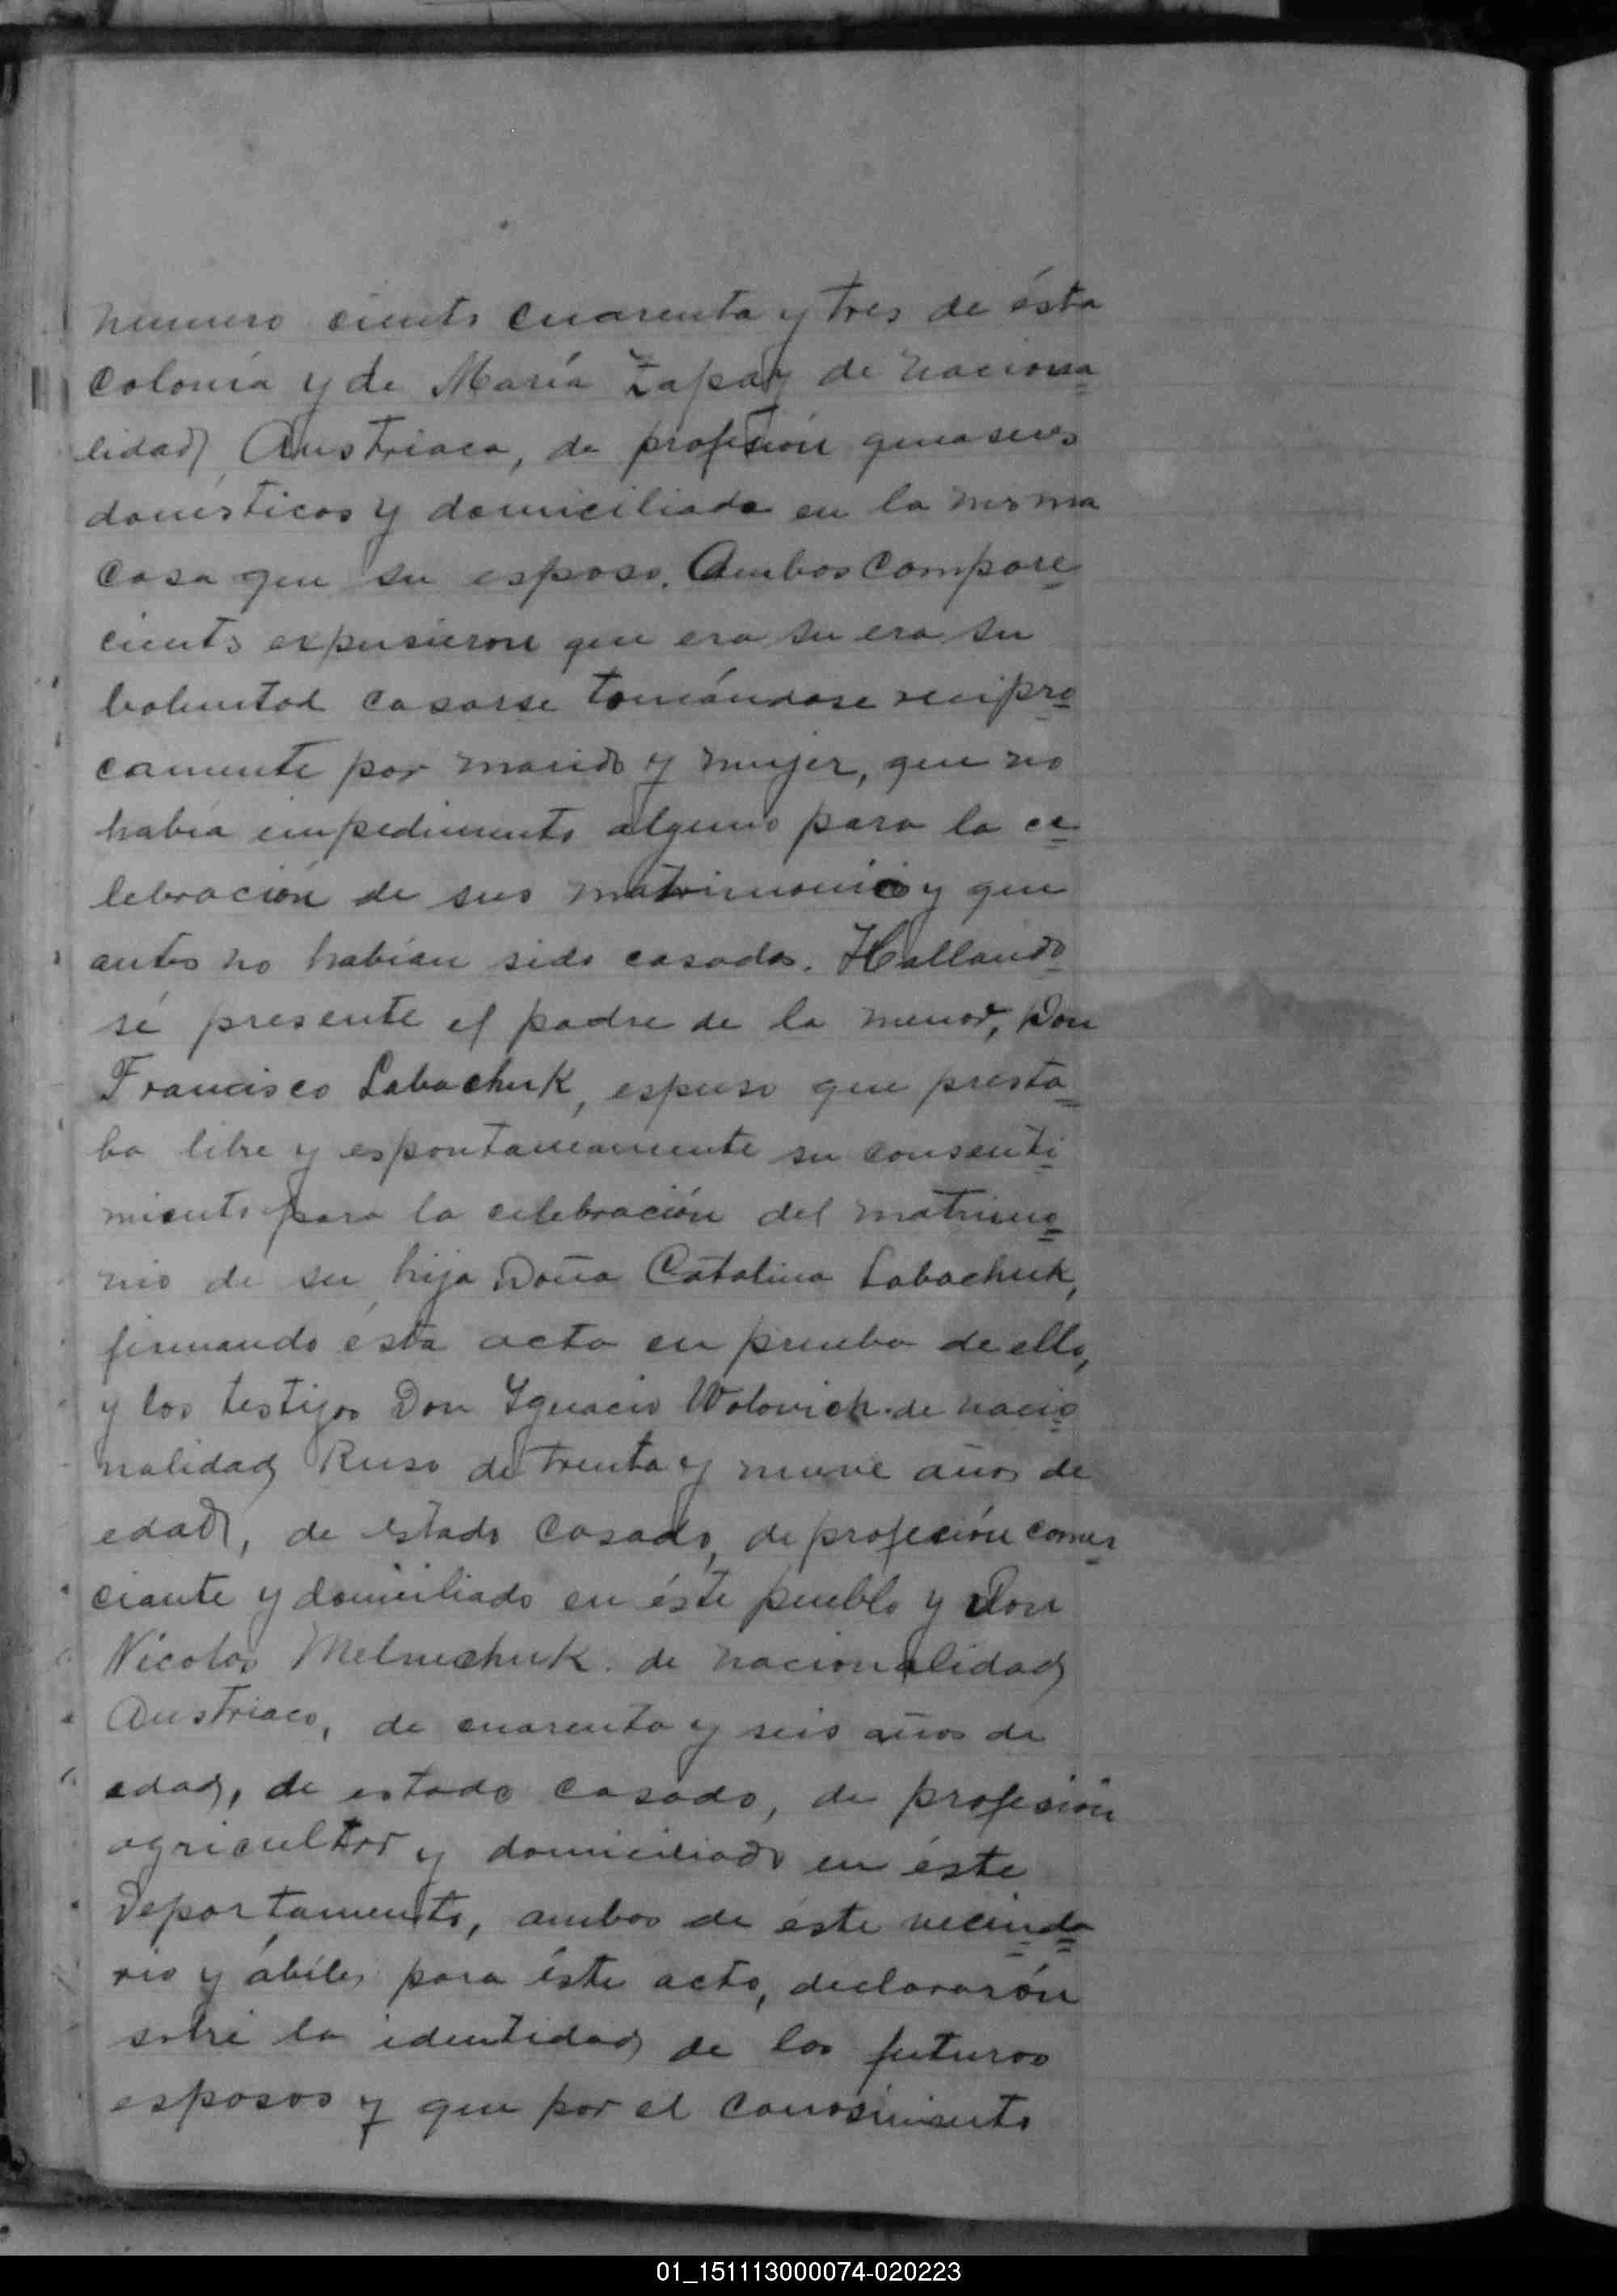 numero ciento cuarenta y tres de ésta
Colonia y de María Zapay de naciona
lidad Austriaca, de profesión quaseres
domésticos y domiciliada en la misma
Casa que su esposo. Ambos Compare
ciento expusieron que era su era su
boluntad casarse tomándose recipro
camente por marido y mujer, que no
había impedimento alguno para la ce
lebración de sus matrimonio y que
antes no habían sido casados. Hallando
sé presente el padre de la menor, Don
Francisco Labachuk, espuso que presta
ba libre y espontaneamente su consenti
miento para la celebración del matrimo
nio de su hija Doña Catalina Labachuk,
firmando ésta acta en prueba de ello,
y los testigos Don Ignacio Wolovich de nacio
nalidad Ruso de treinta y nueve años de
edad, de estado Casado, de profeción comer
ciante y domiciliado en éste pueblo y Don
Nicolas Melnechuk de nacionalidad
Austriaco, de cuarenta y seis años de
edad, de estado casado, de profesión
agricultor y domiciliado en éste
Departamento, ambos de éste vecinda
rio y ábiles para éste acto, declararón
sobre la identidad de los futuros
esposos y que por el conosimiento
01_151113000074-020223